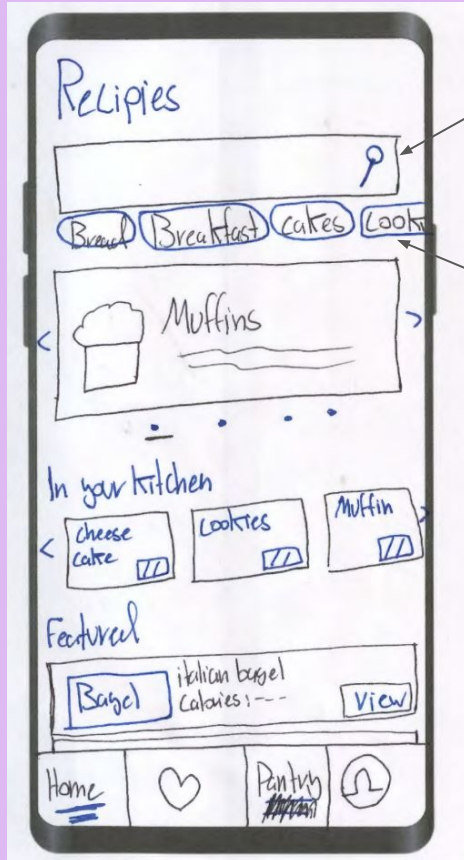 Recipies
Bread Breakfast cakes Cooki
Muffins
In your kitchen
cheese cake
Cookies
Muffin
Featured
Bagel
italian bagel
Calories:---
View
Home
Pantry